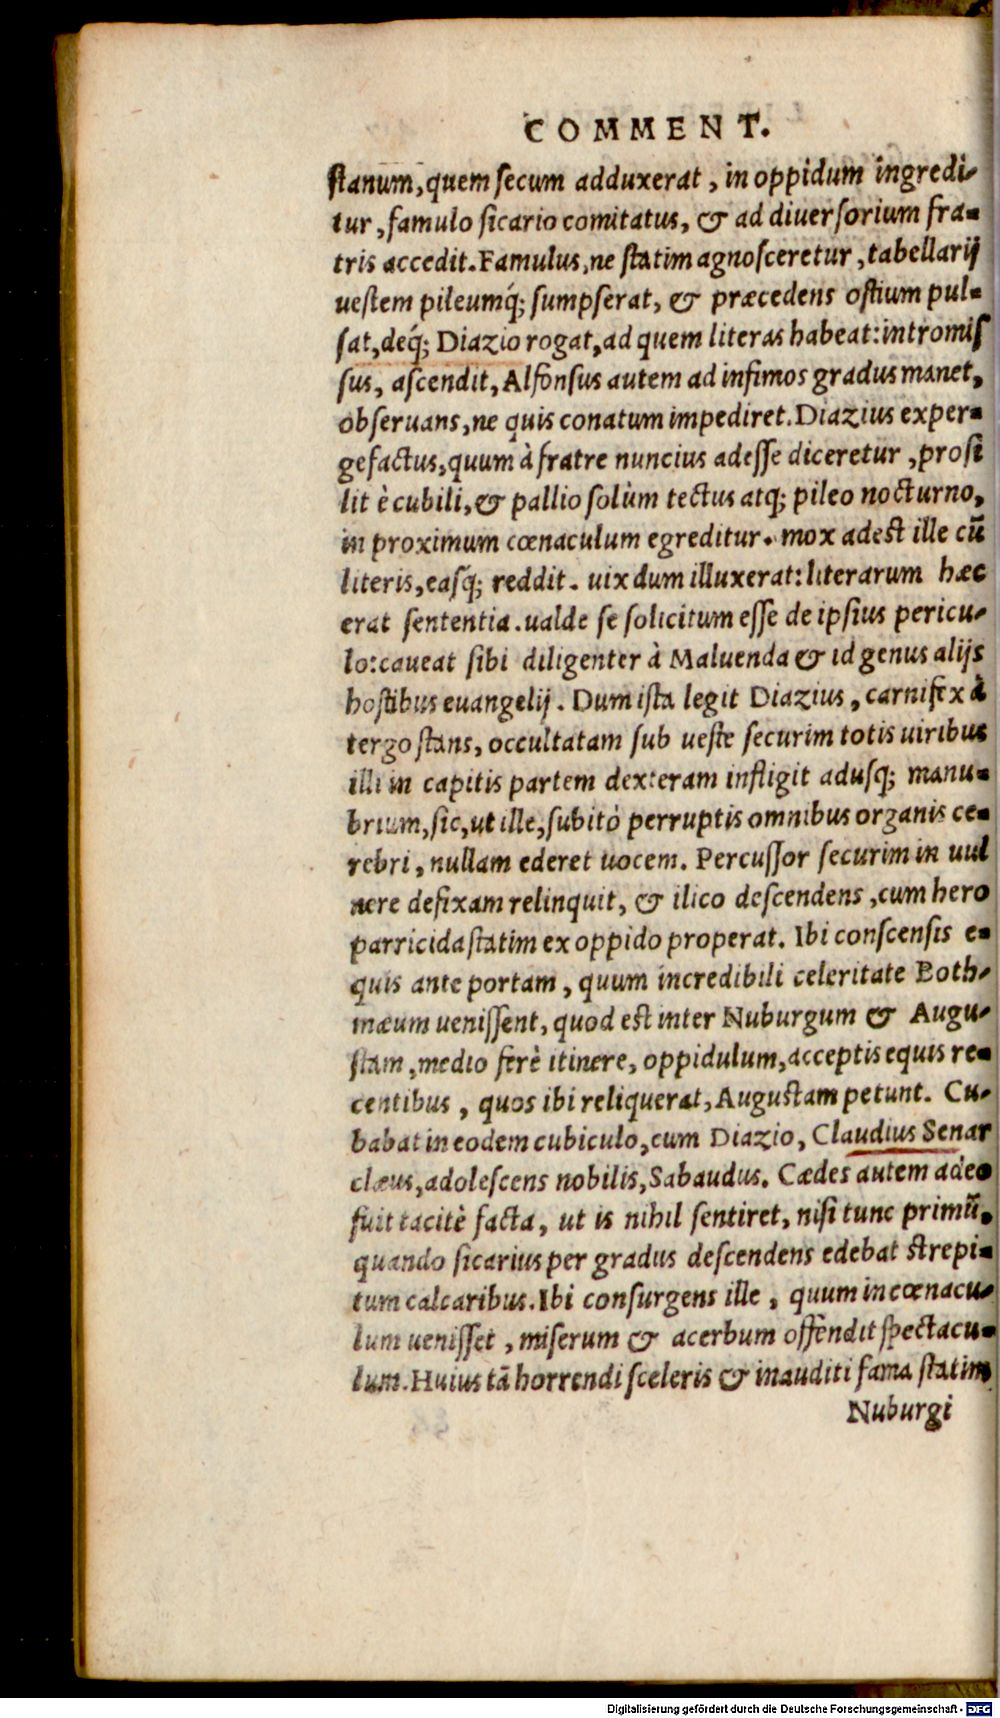 COMMENT.
stanum, quem secum adduxerat, in oppidum ingredi-
tur, famulo sicario comitatus, & ad diuersorium fra-
tris accedit. Famulus, ne statim agnosceretur, tabellarij
uestem pileumq́; sumpserat, & præcedens ostium pul-
sat, deq́; Diazio rogat, ad quem literas habeat: intromis
sus, ascendit, Alfonsus autem ad infimos gradus manet,
obseruans, ne quis conatum impediret. Diazius exper-
gefactus, quum à fratre nuncius adesse diceretur, prosi
lit è cubili, & pallio solùm tectus atq; pileo nocturno,
in proximum cœnaculum egreditur. mox adest ille cū
literis, easq́; reddit. uix dum illuxerat: literarum hæc
erat sententia. ualde se solicitum esse de ipsius pericu-
lo: caueat sibi diligenter à Maluenda & id genus alijs
hostibus euangelij. Dum ista legit Diazius, carnifex à
tergo stans, occultatam sub ueste securim totis uiribus
illi in capitis partem dexteram infligit adusq; manu-
brium, sic, ut ille, subitò perruptis omnibus organis ce-
rebri, nullam ederet uocem. Percussor securim in uul
nere defixam relinquit, & ilico descendens, cum hero
parricida statim ex oppido properat. Ibi conscensis e-
quis ante portam, quum incredibili celeritate Both-
mæum uenissent, quod est inter Nuburgum & Augu-
stam, medio ferè itinere, oppidulum, acceptis equis re-
centibus, quos ibi reliquerat, Augustam petunt. Cu-
babat in eodem cubiculo, cum Diazio, Claudius Senar
clæus, adolescens nobilis, Sabaudus. Cædes autem adeo
fuit tacitè facta, ut is nihil sentiret, nisi tunc primū,
quando sicarius per gradus descendens edebat strepi-
tum calcaribus. Ibi consurgens ille, quum in cœnacu-
lum uenisset, miserum & acerbum offendit spectacu-
lum. Huius tā horrendi sceleris & inauditi fama statim
Nuburgi
Digitalisierung gefördert durch die Deutsche Forschungsgemeinschaft - DFG